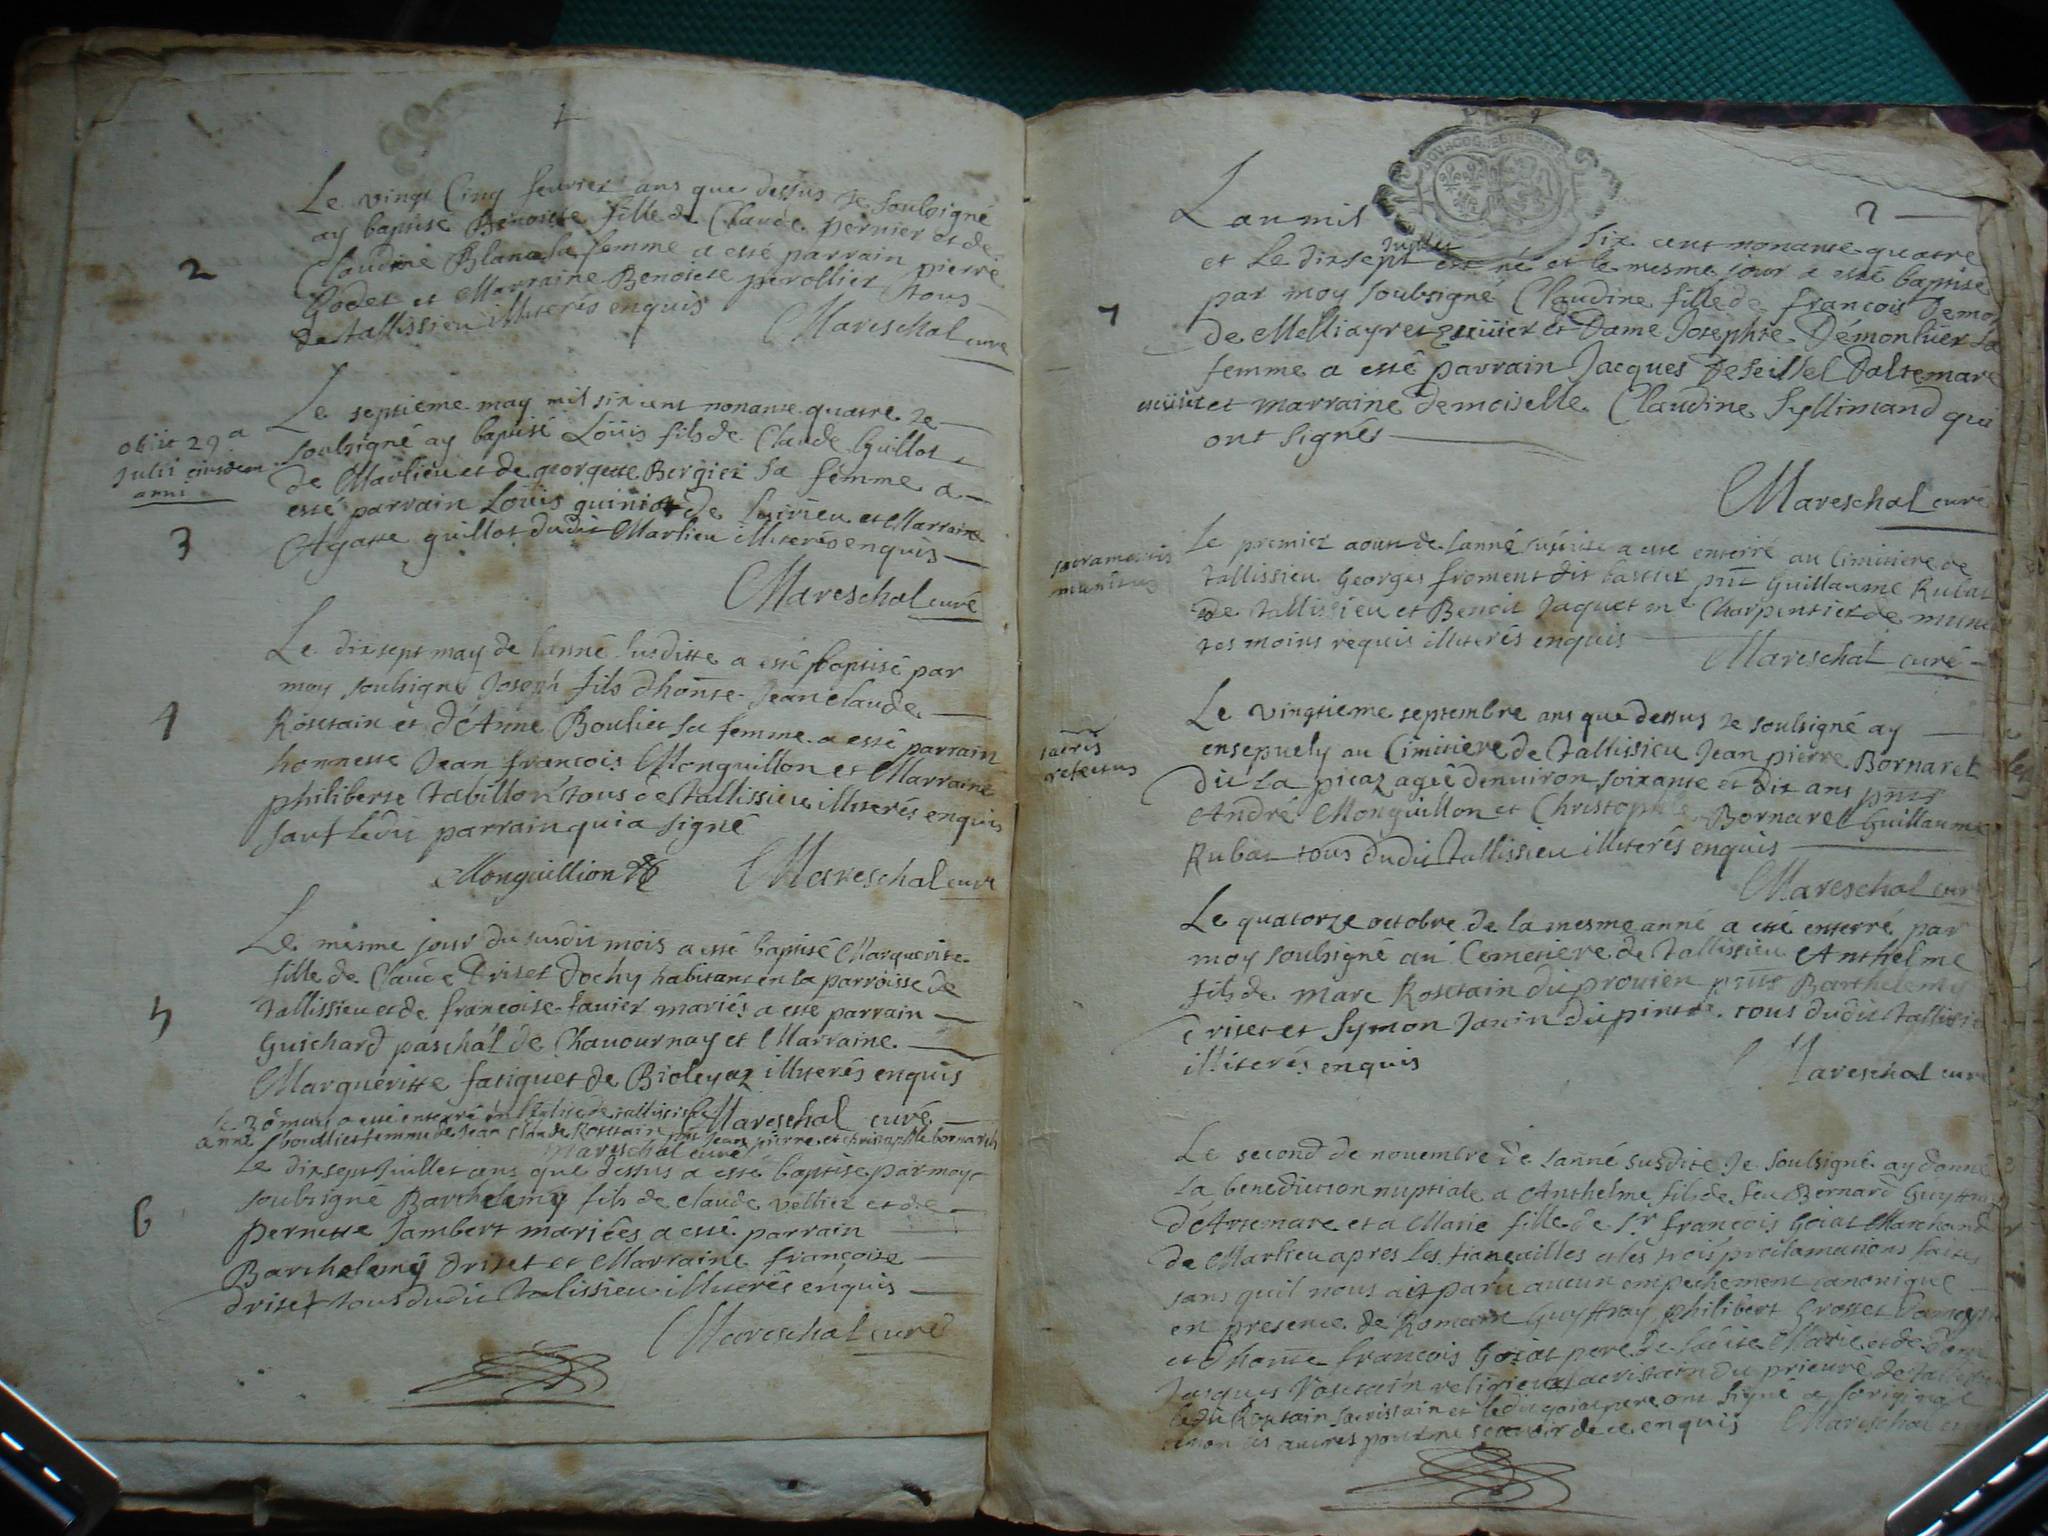 Le vingt Cinq feurier ans que dessus Je soulsigné
ay baptisé Benoiste fille de Claude pernier et de
Claudine Blanc sa femme a esté parrain pierre
2
Godet et Marraine Benoiste perollier tous
de tallissieu illiterés enquis
Mareschal curé
Le septieme may mil six cent nonante quatre Je
obiit 29a
Julii eiusdem
anni
soulsigné ay baptisé Loüis fils de Claude Guillot
de Marlieu et de georgette Bergier sa femme a
esté parrain Loüis guiniot de et Marraine
3
Agatte guillot dudit Marlieu illiterés enquis
Mareschal curé
Le dixsept may de lanné susditte a esté baptisé par
moy soulsigné Joseph fils dhonste Jean claude
4
Rostain et d'Anne Boulier sa femme a esté parrain
honneste Jean francois Monguillon et Marraine
philiberte tabillon tous de tallissieu illiterés enquis
sauf ledit parrain qui a signé
Monguillion Mareschal curé
Le mesme jour du susdit mois a esté baptisé Marguerite
fille de Claude Driset Dochy habitant en la parroisse de
5
tallissieu et de francoise fauier mariés a esté parrain
Guichard paschal de Chauournay et Marraine
Margueritte fatiguet de Bioleyaz illiterés enquis
Mareschal curé
le 30 may a esté enterré en l'eglise de tallissieu
anne boullier femme de Jean Claude Rostain pnt Jean pierre et christophle bornarel
Mareschal curé
Le dixsept Juillet ans que dessus a esté baptisé par moy
soulsigné Barthelemy fils de claude vellier et de
6
pernette Jambert mariées a esté parrain
Barthelemy Driset et Marraine francoise
driset tous dudit talissieu illiterés enquis
Mareschal curé
2
Lan mil six cent nonante quatre
Juillet
et Le dixsept est né et le mesme jour a esté baptisé
7
par moy soulsigné Claudine fille de francois Demoy
de Melliayret et Dame Josephte Démonluier sa
femme a esté parrain Jacques Deseissel Daltemare
et marraine demoiselle Claudine Syllimand qui
ont signés
Mareschal curé
sacramentis
munitus
Le premier aoust de lanné susdite a esté enterré au Cimitiere de
tallissieu Georges froment dit bastier pnt Guillaume Rubat
de tallissieu et Benoit Jaquet me Charpentier de
tesmoins requis illiterés enquis
Mareschal curé
sacris
refectus
Le vingtieme septembre ans que dessus Je soulsigné ay
ensepuely au Cimitiere de tallissieu Jean pierre Bornarel
dit La picaz agée denuiron soixante et dix ans pnts
André Monguillon et Christophle Bornarel Guillaume
Rubat tous dudit tallissieu illiterés enquis
Mareschal curé
Le quatorze octobre de la mesme anné a esté enterré par
moy soulsigné au Cemetiere de tallissieu Anthelme
fils de Marc Rostain du prouien pnts Barthelemy
driset et Symon Janin du tous dudit tallissieu
illiterés enquis
Mareschal curé
Le second de nouembre de lanné susdite Je soulsigné ay donné
la benediction nuptiale a Anthelme fils de feu Bernard Guyffray
d'Artemare et a Marie fille de Sr francois Goiat Marchand
de Marlieu apres les fiancailles et les trois proclamations faites
sans quil nous ait paru aucun empechement canonique
en presence de Romain Guyffray philibert Grosset
et Honste francois Goiat pere de ladite Marie et de dom
Jacques Rostain religieux sacristain du prieuré de
ledit Rostain sacristain et ledit goiat pere ont signé a loriginal
et non les autres pour ne scavoir de ce enquis Mareschal